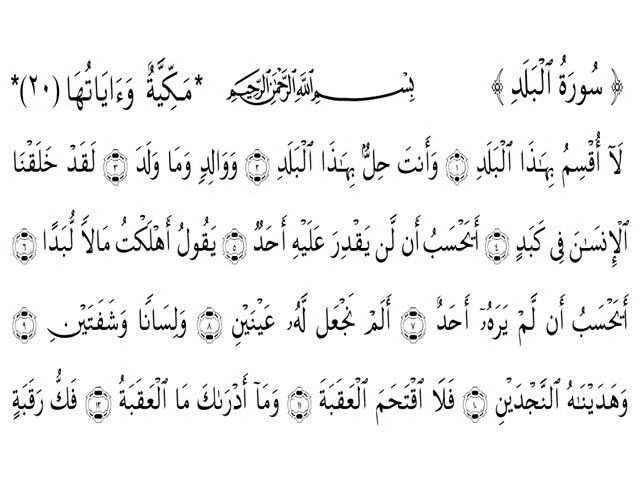 ﴿ سُورَةُ ٱلْبَلَدِ ﴾ بِسْمِ ٱللَّهِ ٱلرَّحْمَٰنِ ٱلرَّحِيمِ *مَكِّيَّةٌ وَءَايَاتُهَا (٢٠)*
لَآ أُقْسِمُ بِهَٰذَا ٱلْبَلَدِ ١ وَأَنتَ حِلٌّۢ بِهَٰذَا ٱلْبَلَدِ ٢ وَوَالِدٍ وَمَا وَلَدَ ٣ لَقَدْ خَلَقْنَا
ٱلْإِنسَٰنَ فِى كَبَدٍ ٤ أَيَحْسَبُ أَن لَّن يَقْدِرَ عَلَيْهِ أَحَدٌ ٥ يَقُولُ أَهْلَكْتُ مَالًا لُّبَدًا ٦
أَيَحْسَبُ أَن لَّمْ يَرَهُۥٓ أَحَدٌ ٧ أَلَمْ نَجْعَل لَّهُۥ عَيْنَيْنِ ٨ وَلِسَانًا وَشَفَتَيْنِ ٩
وَهَدَيْنَٰهُ ٱلنَّجْدَيْنِ ١٠ فَلَا ٱقْتَحَمَ ٱلْعَقَبَةَ ١١ وَمَآ أَدْرَىٰكَ مَا ٱلْعَقَبَةُ ١٢ فَكُّ رَقَبَةٍ